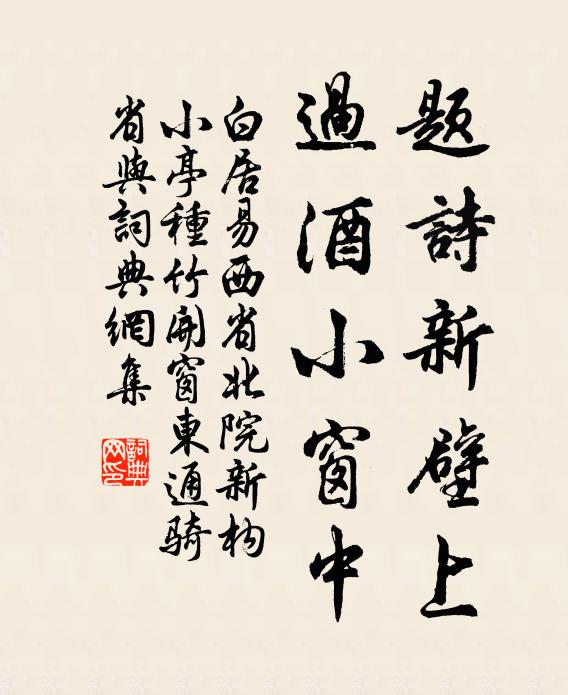 题詩新壁上
過酒小窗中
白居易西省北院新构
小亭種竹開窗東通骑
省與詞典網集
詞典
网印